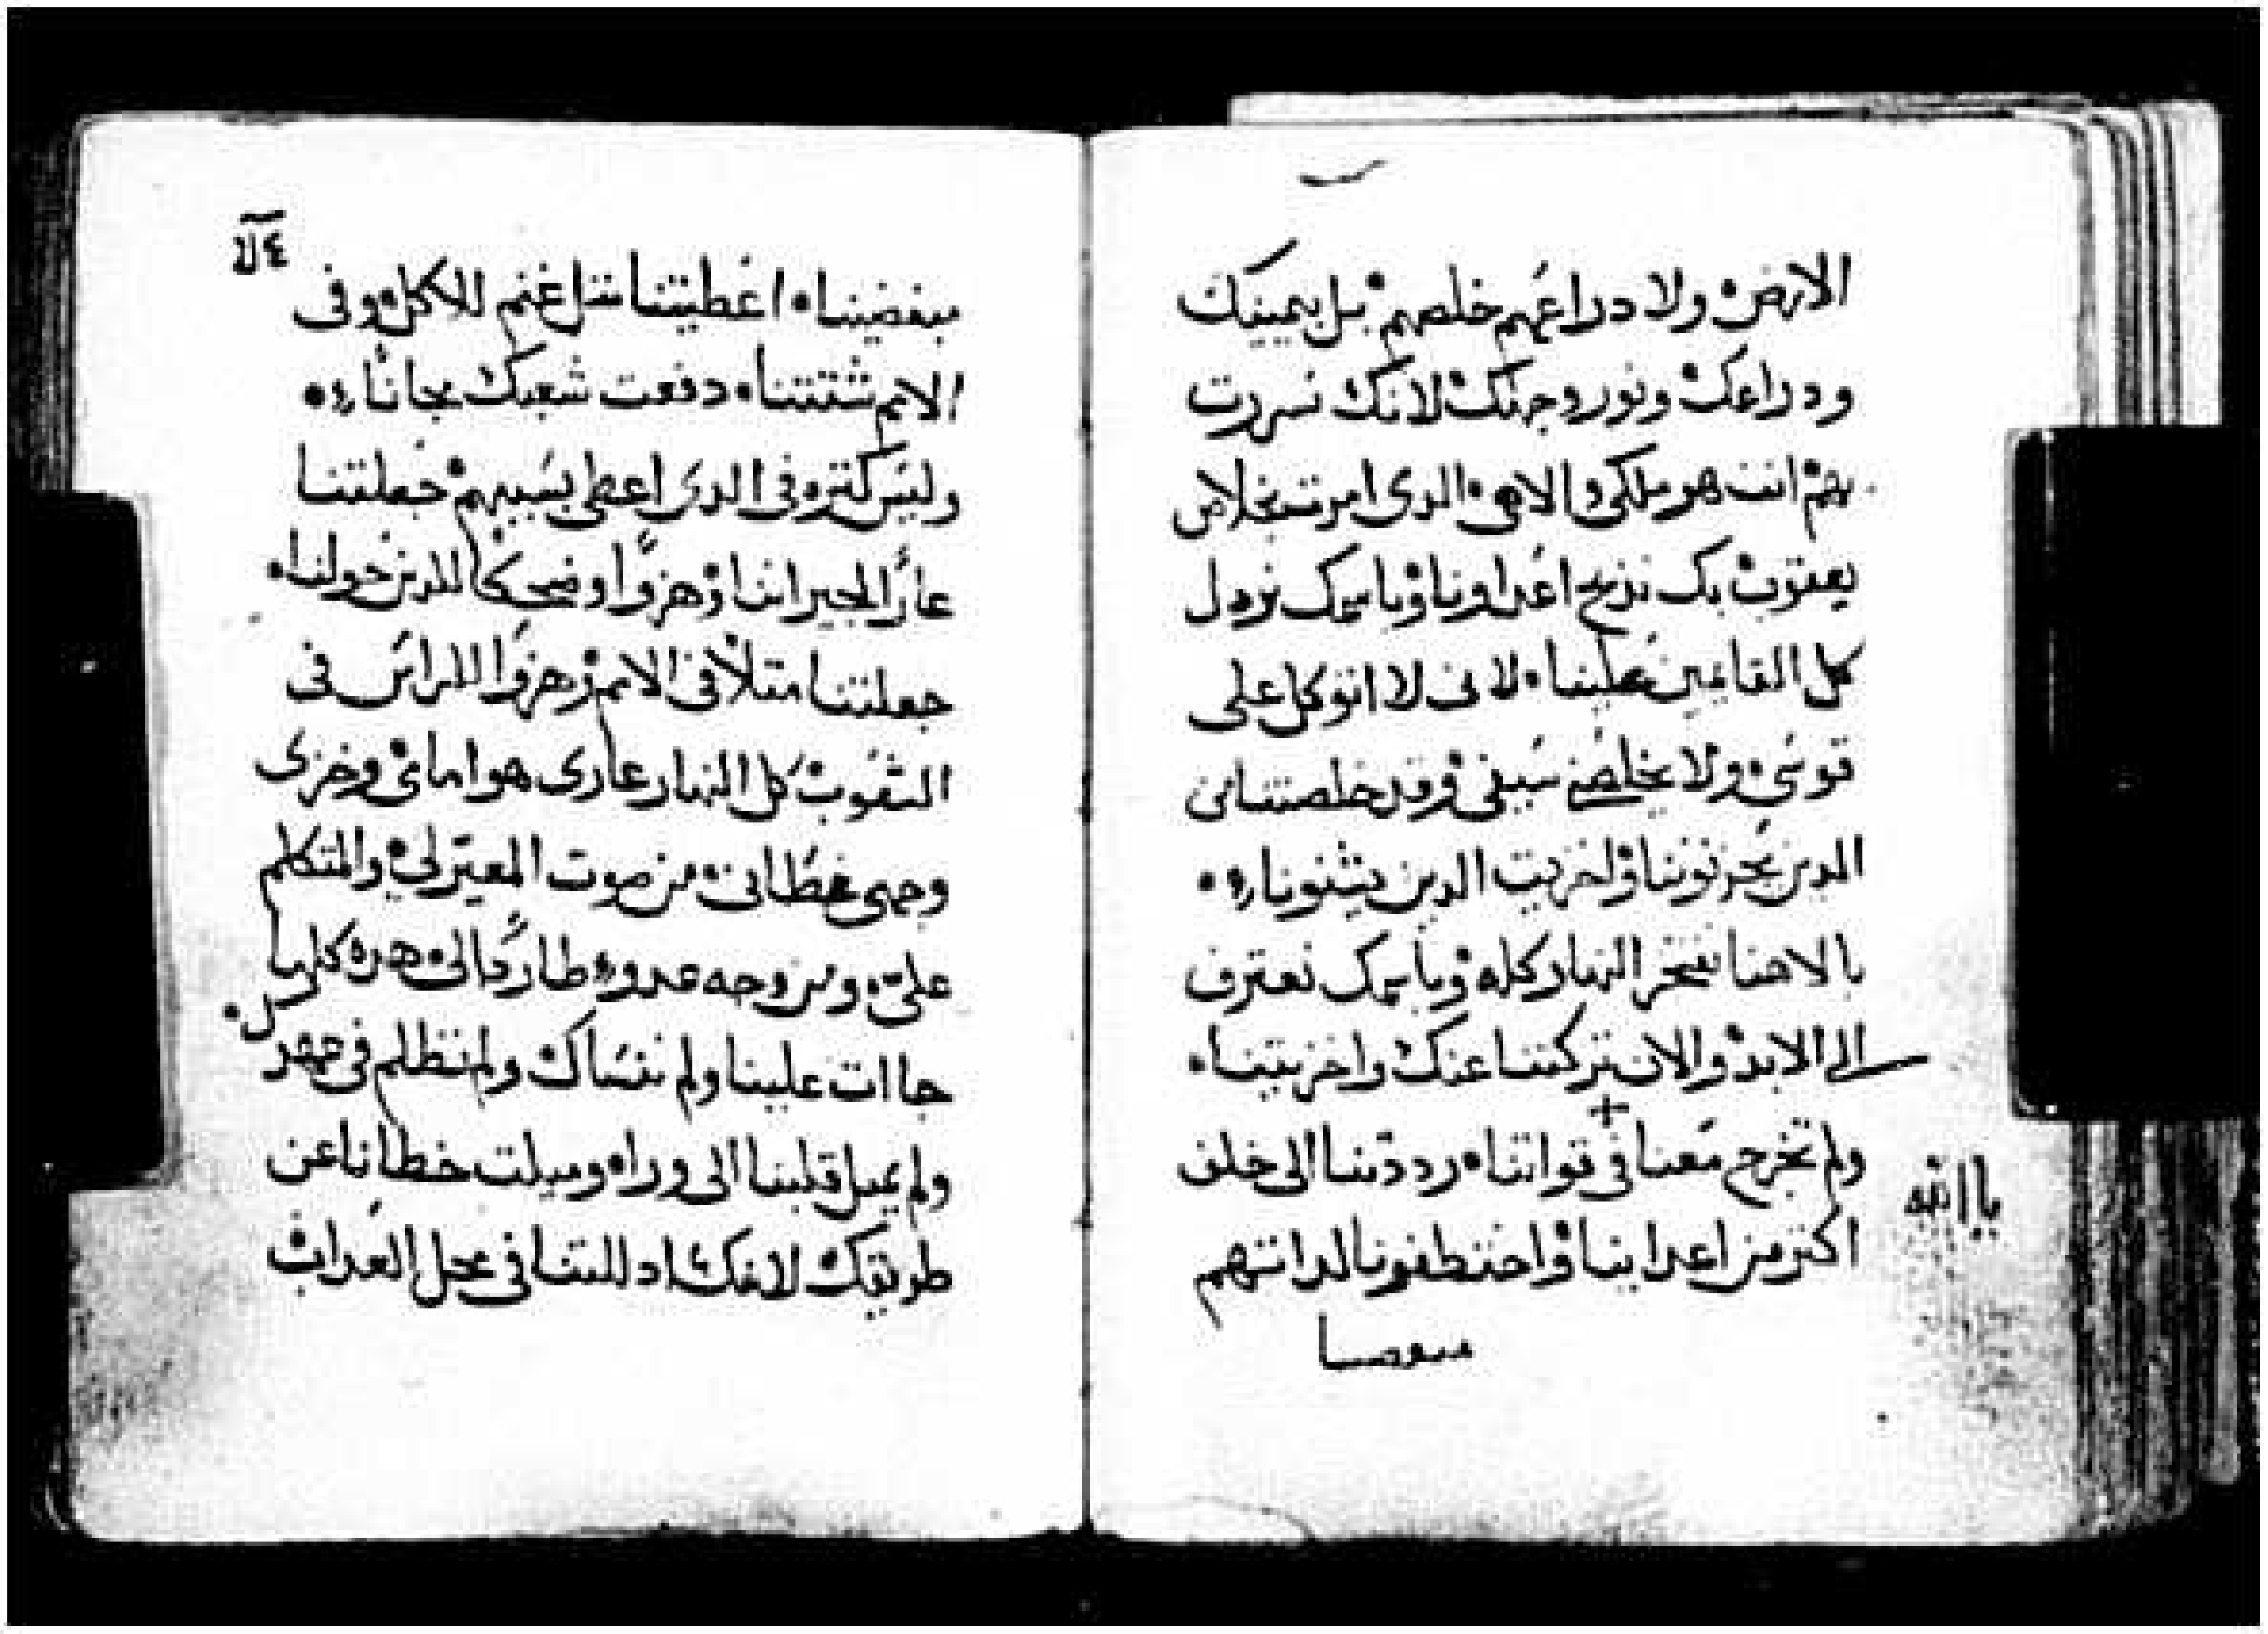 الارض ولا دراعهم خلصهم بل يمينك
ودراعك ونور وجهك لانك سررت
بهم انت هو ملكي والاهي الدي امرت بخلاص
يعقوب بك نذبح اعداونا وباسمك نردل
كل القايمين علينا لاني لا اتوكل على
قوسي ولا يخلصني سيفي وقد خلصتنا من
الدين يحزنوننا واخزيت الدين يشنونا
بالاهنا نفتخر النهار كله وباسمك نعترف
الى الابد والان تركتنا عنك واخزيتنا
ولم تخرج معنا في قواتنا رددتنا الى خلف
ياالله
اكتر من اعداينا واختطفونا لداتهم
مبغضينا
٤لا
مبغضينا اعطيتنا متل غنم للاكل وفي
الامم شتتتنا دفعت شعبك مجانا
وليس كتره في الدي اعطي بسببهم جعلتنا
عارا لجيراننا وهزوا وضحكا للدين حولنا
جعلتنا متلا في الامم وهز الراس في
الشعوب كل النهار عاري هو امامي وخزي
وجهي غطاني من صوت المعيرلي والمتكلم
علي ومن وجه عدو طاردالي هده كلها
جاات علينا ولم ننساك ولم نظلم في عهدك
ولم يميل قلبنا الى وراه وميلت خطانا عن
طريقك لانك ادللتنا في محل العداب